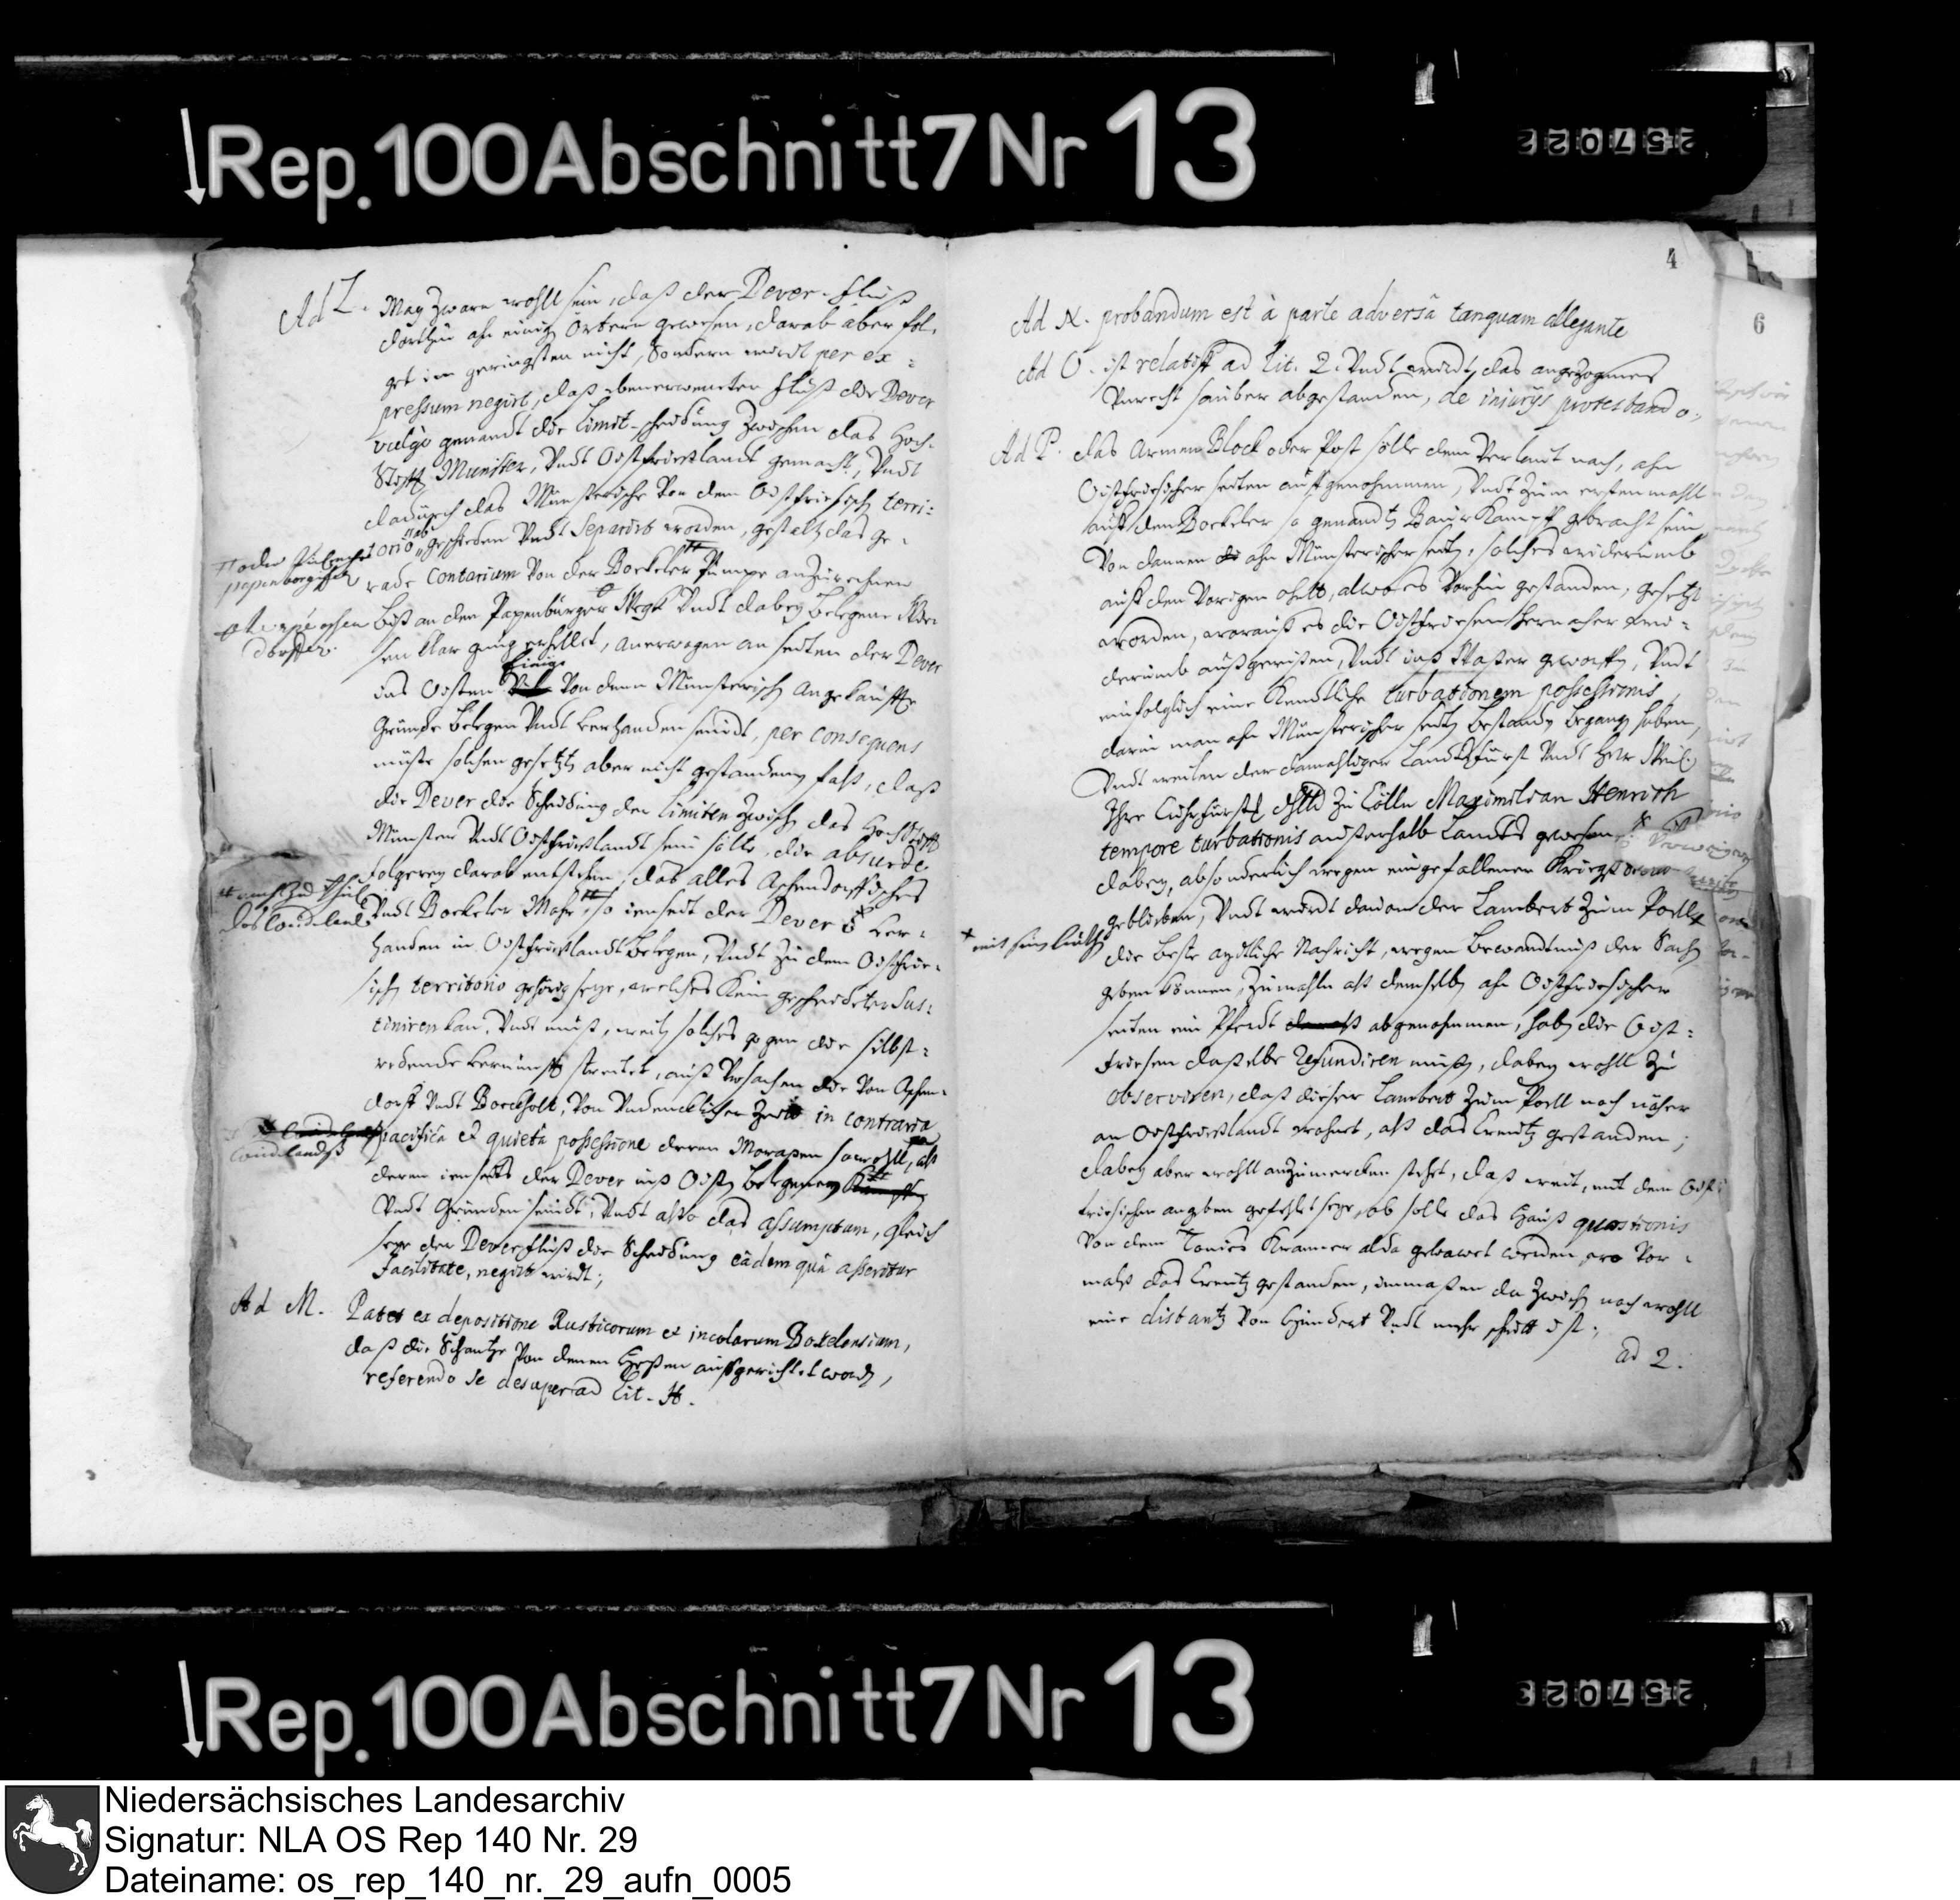 Rep. 100 Abschnitt 7 Nr 13
257022
Ad L. May zwarn wohll sein, daß der Dever-fluß
dorthin ahn einig örtern gewesen, darab aber fol-
get im geringsten nicht, sondern wirdt per ex-
pressum negirt, daß obenerwenter fluß die Dever
vulgò genandt die limit-scheidung zwischen das Hoch-
Stifft Münster, Undt Oostfrießlandt gemacht, Undt
dadurch das Münsterische Von dem Oostfriesisch terri-
torio, ab geschieden Undt separirt worden, gestalt das ge-
rade contrarium Von der Bockeler Pumpe anzurechnen
oder
papenborgischen
biß an den Papenburger Wegh Undt dabey belegene
sen klar gnug erhellet, anerwagen an seiten der Dever
das Oosten einige Von denn Münsterisch angekauffte
Gründe belegen Undt verhanden seindt, per consequens
müste solchen gesetzt aber nicht gestandenen falß, daß
die Dever die Scheidung der limiten zwisch das HochStifft
Münster Undt Oostfrießlandt sein solte, die absurde
folgerey darab entstehen, das alles Aschendorffisches
Undt Bockeler Mohr, so ienseit der Dever ver-
handen in Oostfrießlandt belegen, Undt zu dem Oostfrie-
sisch territorio gehörig seye, welches kein gescheideter sus-
tiniren kan, Undt muß, weilen solches gegen die selbst-
redende vernunfft streitet, auß Ursachen die Von Aschen-
dorff Undt Bockholt, Von Undencklicher Zeit in contraria
pacifica et quieta possessione deren Morassen sowohll, alß
landlandtß
deren ienseits der Dever inß Oosten belegenen
Undt Gründen seindt, Undt also das assumptum, gleich
seye der Dever fluß die Scheidung eâdem quâ asseritur
facilitate, negirt wirdt;
Ad M. Patet ex depositione Rusticorum et incolarum Bokelensium,
daß die Schantze Von denen Heßen auffgerichtet word,
referendo se desuper ad Lit. H.
4
Ad N. probandum est à parte adversâ tanquam allegante
Ad O. ist relatiff ad Lit. 2. Undt wirdt das angezogenes
Unrecht sauber abgestanden, de iniurijs protestando;
Ad P. das Armen Block oder Post solle dem Verlaut nach, ahn
Oostfriesischer seiten auffgenohmmen, Undt zum ersten mahll
auff den Bockeler so genandt Baur Kampff gebracht sein
Von dannen ahn Münsterischer seith, solches widerumb
auff den Vorigen ohrt, alwo es Vorhin gestanden, gesetzt
worden, worauß es die Oostfriesen hernacher wie-
derumb außgerißen, Undt inß Waßer geworffen, Undt
einfolglich eine kendtliche turbationem possessionis,
darin man ahn Münsterischer seith bestandig begang haben,
Undt weilen der damahliger Landtsfürst Undt Herr Weil.
Ihre Churfürstl. Dhltt zu Cölln Maximilian Henrich
tempore turbationis außerhalb Landts gewesen
dabey, absonderlich wegen eingefallener Kriegs
geblieben, Undt wirdt davon der Lambert zum Poell
* mit sein
die beste aydtliche Nachricht, wegen bewandtnuß der Sach
geben können, zumahln alß demselb ahn Oostfriesischer
seiten ein Pferdt abgenohmmen, hab die Oost-
friesen daßelbe refundiren müß, dabey wohll zu
observiren, daß dieser Lambert zum Poell noch näher
an Oostfrießlandt wohnet, alß das Creutz gestanden;
dabey aber wohll anzumercken stehet, daß weit, mit dem Oost-
friesischen angeben gefehlet seye, ob solle das Hauß quaestionis
Von dem Tonies Kramer alda gebawet worden, wo Vor-
mahlß das Creutz gestanden, inmaßen da zwisch noch wohll
eine distantz Von Hundert Undt mehr schritt ist;
ad 2.
6
Rep. 100 Abschnitt 7 Nr 13
257023
Niedersächsisches Landesarchiv
Signatur: NLA OS Rep 140 Nr. 29
Dateiname: os_rep_140_nr._29_aufn_0005